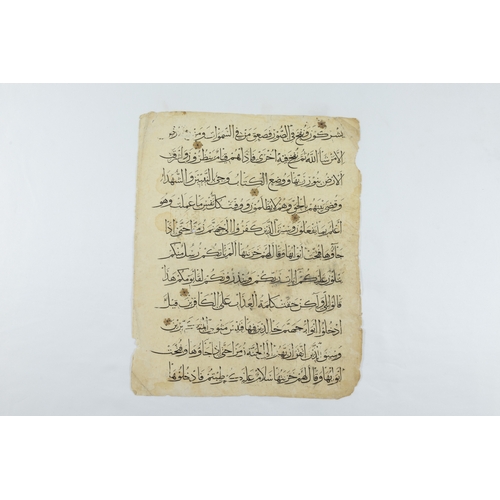 يشركون ونفخ في الصور فصعق من في السموات ومن في
الارض الا من شاء الله ثم نفخ فيه اخرى فاذا هم قيام ينظرون واشرقت
الارض بنور ربها ووضع الكتاب وجيء بالنبيين والشهداء
وقضي بينهم بالحق وهم لا يظلمون ووفيت كل نفس ما عملت وهو
اعلم بما يفعلون وسيق الذين كفروا الى جهنم زمرا حتى اذا
جاؤوها فتحت ابوابها وقال لهم خزنتها الم ياتكم رسل منكم
يتلون عليكم ايات ربكم وينذرونكم لقاء يومكم هذا
قالوا بلى ولكن حقت كلمة العذاب على الكافرين قيل
ادخلوا ابواب جهنم خالدين فيها فبئس مثوى المتكبرين
وسيق الذين اتقوا ربهم الى الجنة زمرا حتى اذا جاؤوها وفتحت
ابوابها وقال لهم خزنتها سلام عليكم طبتم فادخلوها